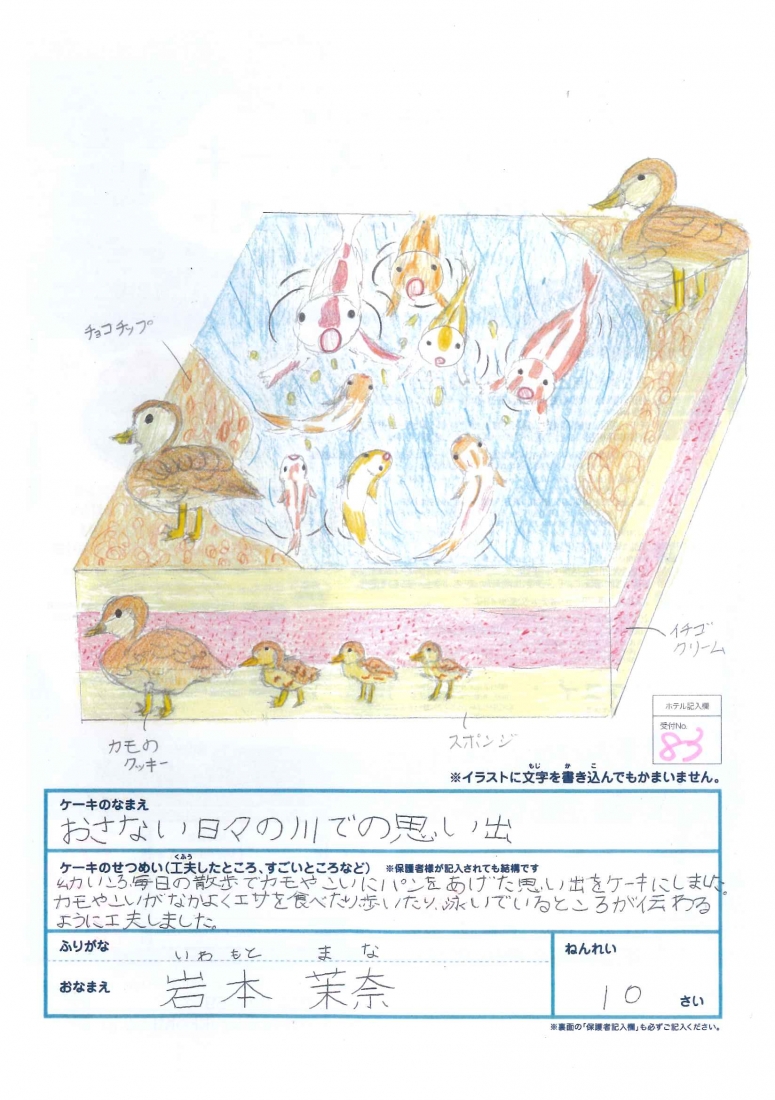 チョコチップ
イチゴ
クリーム
カモの
クッキー
スポンジ
ホテル記入欄
受付No.
83
もじ か こ
※イラストに文字を書き込んでもかまいません。
ケーキのなまえ
おさない日々の川での思い出
くふう
ケーキのせつめい(工夫したところ、すごいところなど) ※保護者様が記入されても結構です
幼いころ毎日の散歩でカモやこいにパンをあげた思い出をケーキにしました。
カモやこいがなかよくエサを食べたり、歩いたり、泳いでいるところが伝わる
ように工夫しました。
ふりがな
いわ もと ま な
おなまえ
岩本 茉奈
ねんれい
10 さい
※裏面の「保護者記入欄」も必ずご記入ください。